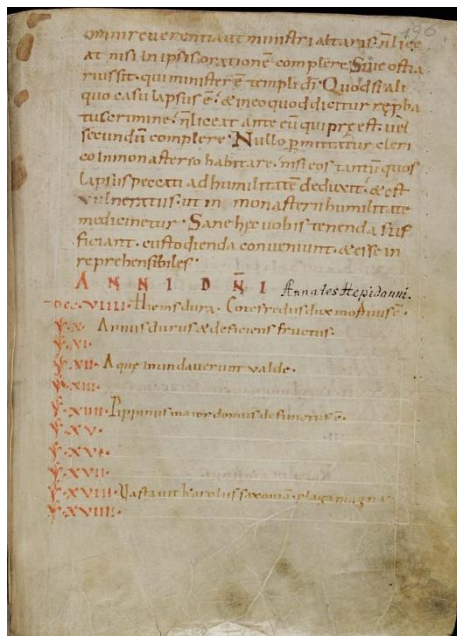 196
omni reverentia ut ministri altaris. n̄ lice
at nisi in ipsis orationē complere. Sive ostia
rius sit. qui minister ē templi dī. Quodsi ali
quo casu lapsus ē. & in eo quod dicitur rep̱ba
tus crimine. n̄ liceat ante eū qui pręest. vel
secundū complere. Nullo p̱mittatur cleri
co in monasterio habitare. nisi eos tantū quos
lapsus peccati ad humilitatē deduxit. & est
vulneratus. ut in monasterii humilitate
medicinetur. Sane hęc vobis tenenda suf
ficiant. custodienda conveniunt. & esse in
reprehensibiles.
ANNI DN̄I Annales Hepidanni.
DCC.VIIII. Hiems dura. Cotefredus dux mortuus ē.
X. Annus durus & deficiens fructus.
XI.
XII. Aque inundaverunt valde.
XIII.
XIIII. Pippinus maior domus defunctus ē.
XV.
XVI.
XVII.
XVIII. Vastavit karolus saxoniā. plaga magna
XVIIII.